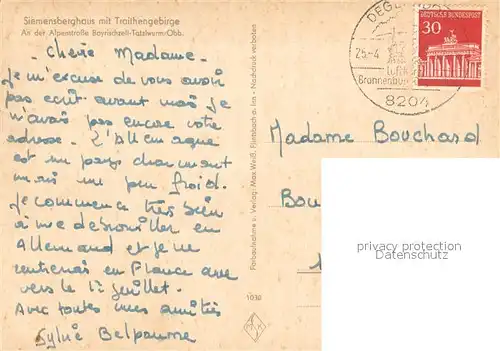 Siemensberghaus mit Traithengebirge
An der Alpenstraße Bayrischzell-Tatzelwurm-Obb.
Chère Madame.
Je m'excuse de vous avoir
pas ecrit avant mais je
n'avais pas encore votre
adresse. L'Allemagne
est un pays charmant
mais un peu froid.
Je commence très bien
à me debrouiller en
Allemand et je ne
rentrerais en France que
vers le 15 juillet.
Avec toutes mes amitiés
Sylvie Belpaume
Farbaufnahme u. Verlag: Max Weiß, Flintsbach a. Inn - Nachdruck verboten
1030
DEUTSCHE BUNDESPOST
30
25.-4
Brannenburg
8204
Madame Bouchard
Bou
privacy protection
datenschutz